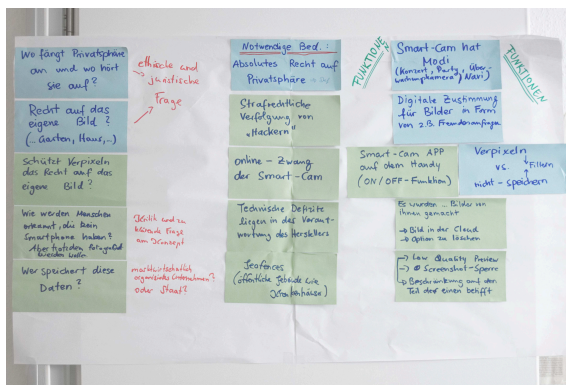 Wo fängt Privatsphäre
an und wo hört
sie auf?
ethische und
juristische
Frage
Recht auf das
eigene Bild?
(... Garten, Haus, ...)
Schützt Verpixeln
das Recht auf das
eigene Bild?
Wie werden Menschen
erkannt, die kein
Smartphone haben?
Aber trotzdem fotografiert
werden wollen
Kritik und zu
klärende Frage
am Konzept
Wer speichert diese
Daten?
marktwirtschaftlich
organisiertes Unternehmen?
oder Staat?
Notwendige Bed.:
Absolutes Recht auf
Privatsphäre
Strafrechtliche
Verfolgung von
"Hackern"
online - Zwang
der Smart-Cam
Technische Defizite
liegen in der Verant-
wortung des Herstellers
Geofences
(öffentliche Gebäude wie
Krankenhäuser)
FUNKTIONEN
Smart-Cam hat
Modi
(Konzert, Party, Über-
wachungskamera, Navi)
FUNKTIONEN
Digitale Zustimmung
für Bilder in Form
von z.B. Freundesanfrage
Smart-Cam APP
auf dem Handy
(ON/OFF-Funktion)
Verpixeln
vs. Filtern
nicht-speichern
Es wurden ... Bilder von
Ihnen gemacht
→ Bild in der Cloud
→ Option zu löschen
→ Low Quality Preview
→ Screenshot-Sperre
→ Beschränkung auf den
Teil der einen betrifft